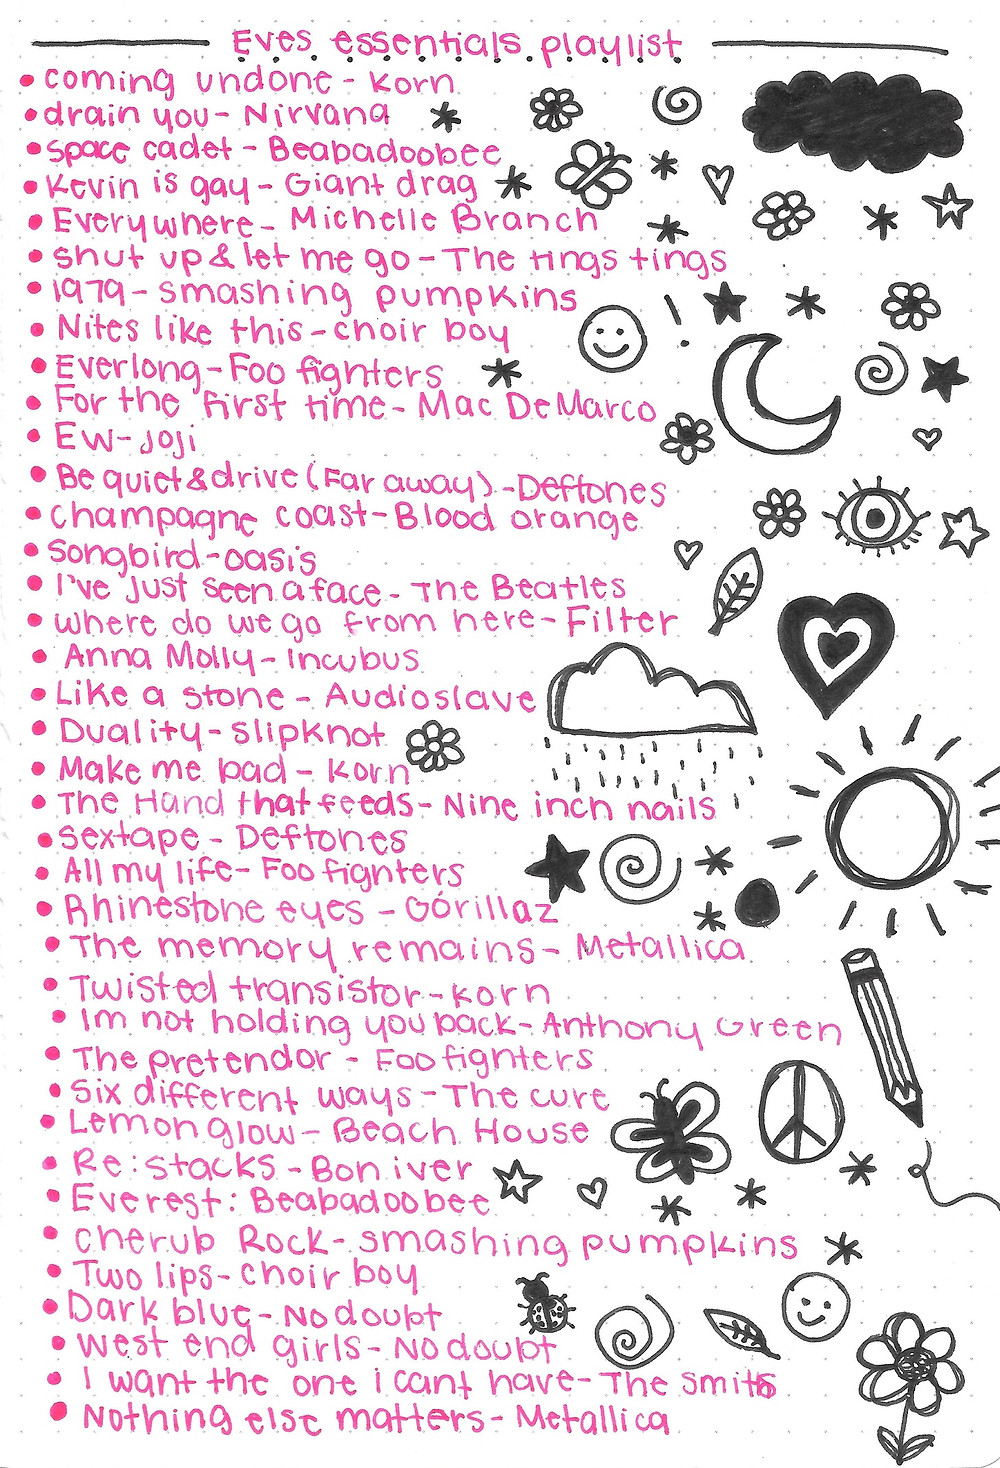 Eves essentials playlist
• coming undone - Korn
• drain you - Nirvana
• space cadet - Beabadoobee
• Kevin is gay - Giant drag
• Everywhere - Michelle Branch
• shut up & let me go - The tings tings
• 1979 - smashing pumpkins
• Nites like this - choir boy
• Everlong - Foo fighters
• For the first time - Mac DeMarco
• Ew - Joji
• Be quiet & drive (Far away) - Deftones
• champagne coast - Blood orange
• songbird - oasis
• I've just seen a face - The Beatles
• where do we go from here - Filter
• Anna Molly - Incubus
• Like a stone - Audioslave
• Duality - slipknot
• Make me bad - Korn
• The Hand that feeds - Nine inch nails
• sextape - Deftones
• All my life - Foo fighters
• Rhinestone eyes - Górillaz
• The memory remains - Metallica
• Twisted transistor - Korn
• Im not holding you back - Anthony Green
• The pretendor - Foo fighters
• six different ways - The cure
• Lemon glow - Beach House
• Re: stacks - Bon iver
• Everest: Beabadoobee
• cherub Rock - smashing pumpkins
• Two lips - choir boy
• Dark blue - No doubt
• west end girls - No doubt
• I want the one i cant have - The smiths
• Nothing else matters - Metallica